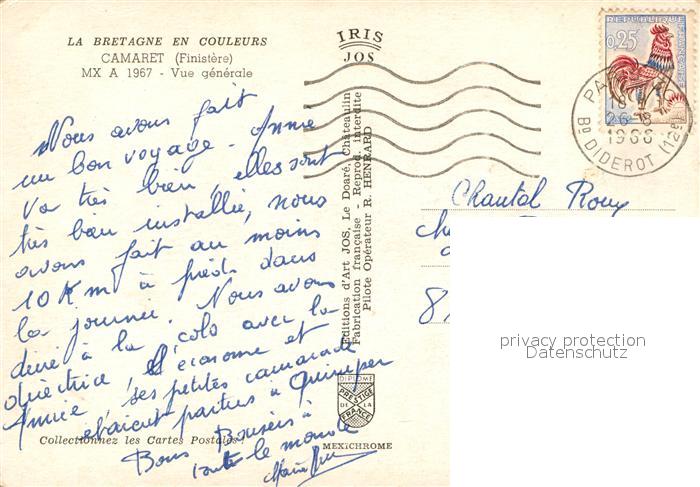 LA BRETAGNE EN COULEURS
CAMARET (Finistère)
MX A 1967 - Vue générale
IRIS
JOS
REPUBLIQUE FRANÇAISE
0,25
PARIS
18 H
26-8
1966
Bd DIDEROT (12e)
Nous avons fait
un bon voyage - Annie
va très bien, elles sont
très bien installée, nous
avons fait au moins
10 Km à pieds dans
la journée. Nous avons
diné à la colo avec la
directrice l'économe et
Annie, ses petites camarade
étaient parties à Quimper
Bons Baisers à
toute le monde
Editions d'Art JOS, Le Doaré, Châteaulin
Fabrication française - Reprod. interdite
Pilote Opérateur R. HENRARD
Chantal Roux
8
privacy protection
Datenschutz
DIPLOME
PRESTIGE
DE LA
FRANCE
Collectionnez les Cartes Postales !
MEXICHROME